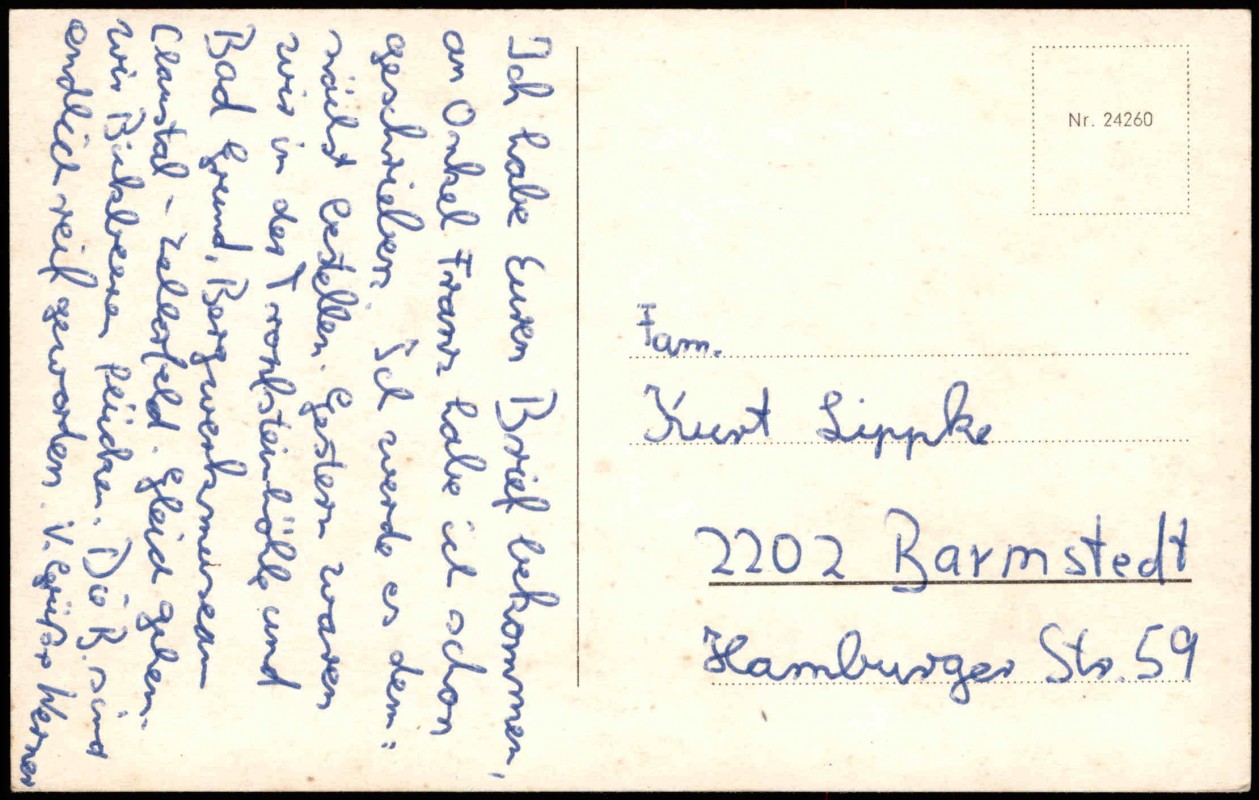 Ich habe Euren Brief bekommen,
an Onkel Franz habe ich schon
geschrieben. Ich werde es dem-
nächst bestellen. Gestern waren
wir in der Tropfsteinhöhle und
Bad Grund, Bergwerkmuseum
Claustal-Zellerfeld. Gleich gehen
wir Bickbeeren flücken. Die B. sind
endlich reif geworden. V. Grüße Werner
Nr. 24260
Fam.
Kurt Lippke
2202 Barmstedt
Hamburger Str. 59